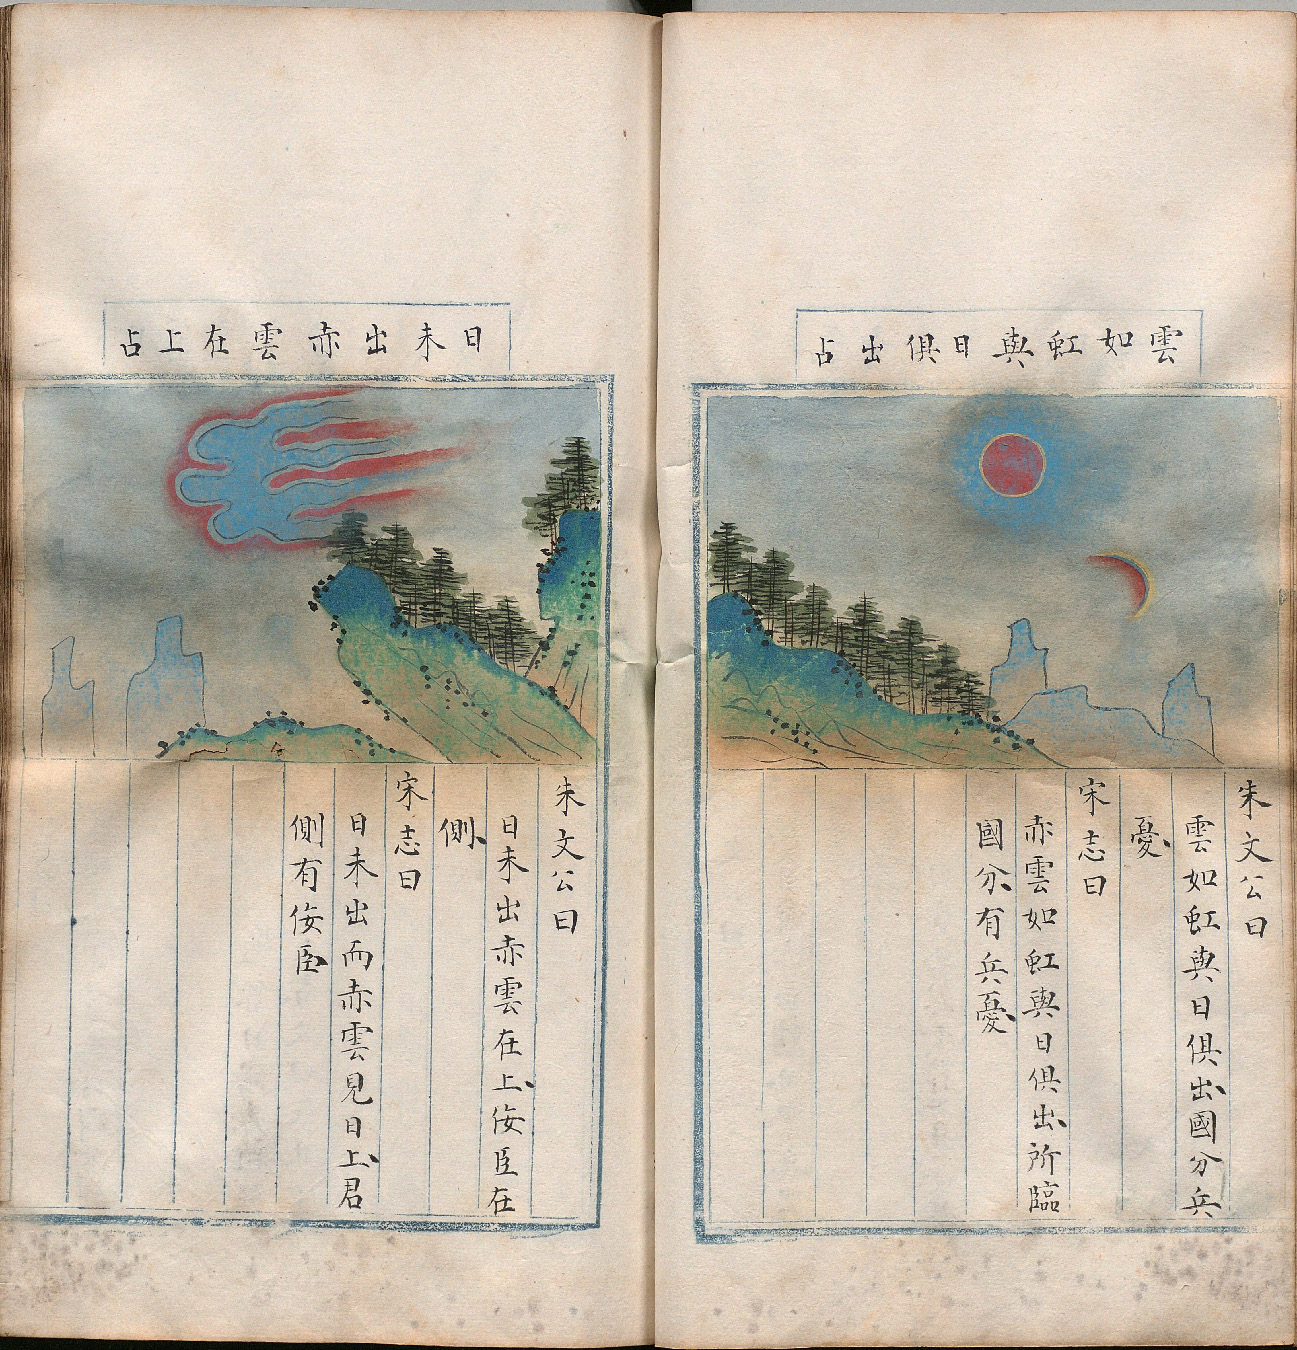 雲如虹與日俱出占
朱文公曰
雲如虹與日俱出國分兵
憂
宋志曰
赤雲如虹與日俱出所臨
國分有兵憂
日未出赤雲在上占
朱文公曰
日未出赤雲在上佞臣在
側
宋志曰
日未出而赤雲見日上君
側有佞臣